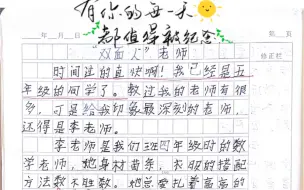 有你的每一天
都值得被纪念
年 月 日 第 页
"双面人"老师
修正栏
时间过的真快啊!我已经是五
年级的同学了。教过我的老师有很
多,可是给我印象最深刻的老师,
还得是李老师。
李老师是我们班四年级时的数
学老师,她身材苗条,衣服的搭配
方法数不胜数。她总爱扎着高高的